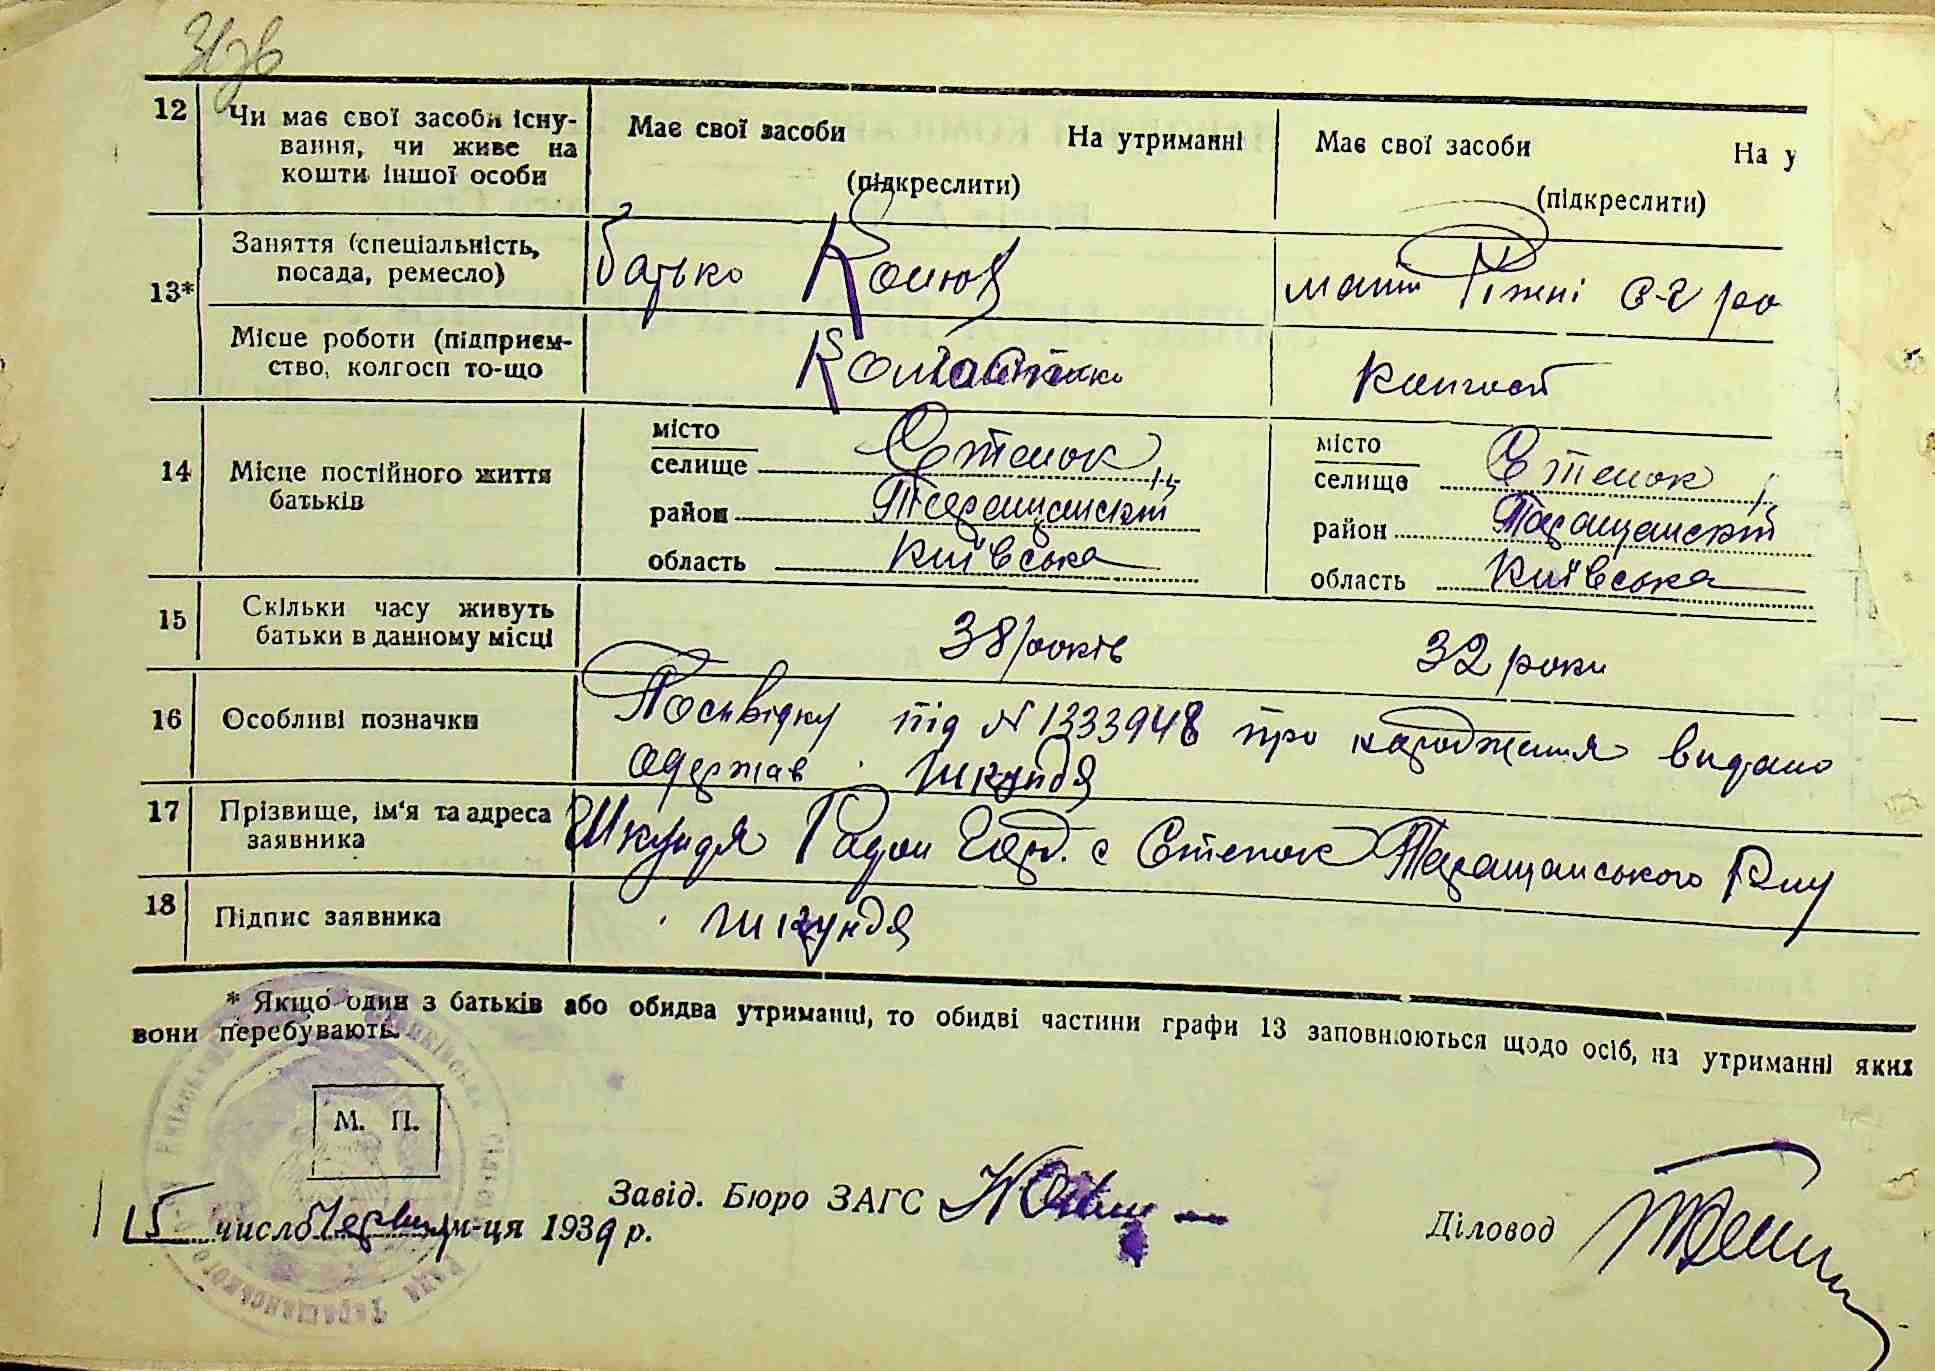 12 Чи має свої засоби існу-
вання, чи живе на
кошти іншої особи
Має свої засоби На утриманні
(підкреслити)
Має свої засоби На у
(підкреслити)
13* Заняття (спеціальність,
посада, ремесло)
батько Конюх
мати Різні с-г ро
Місце роботи (підприєм-
ство, колгосп то-що
колгосп
14 Місце постійного життя
батьків
місто
селище Степок
район Таращанский
область Київська
місто
селище Степок
район Таращанский
область Київська
15 Скільки часу живуть
батьки в данному місці
38 років 32 роки
16 Особливі позначки
Посвідку під № 1333948 про народження видано
одержав Шкундя
17 Прізвище, ім'я та адреса
заявника
Шкундя Гадон с Степок Таращанського р-ну
18 Підпис заявника
Шкундя
* Якщо один з батьків або обидва утриманці, то обидві частини графи 13 заповнюються щодо осіб, на утриманні яких
вони перебувають.
М. П.
Завід. Бюро ЗАГС
Діловод
15 число Червня м-ця 1939 р.